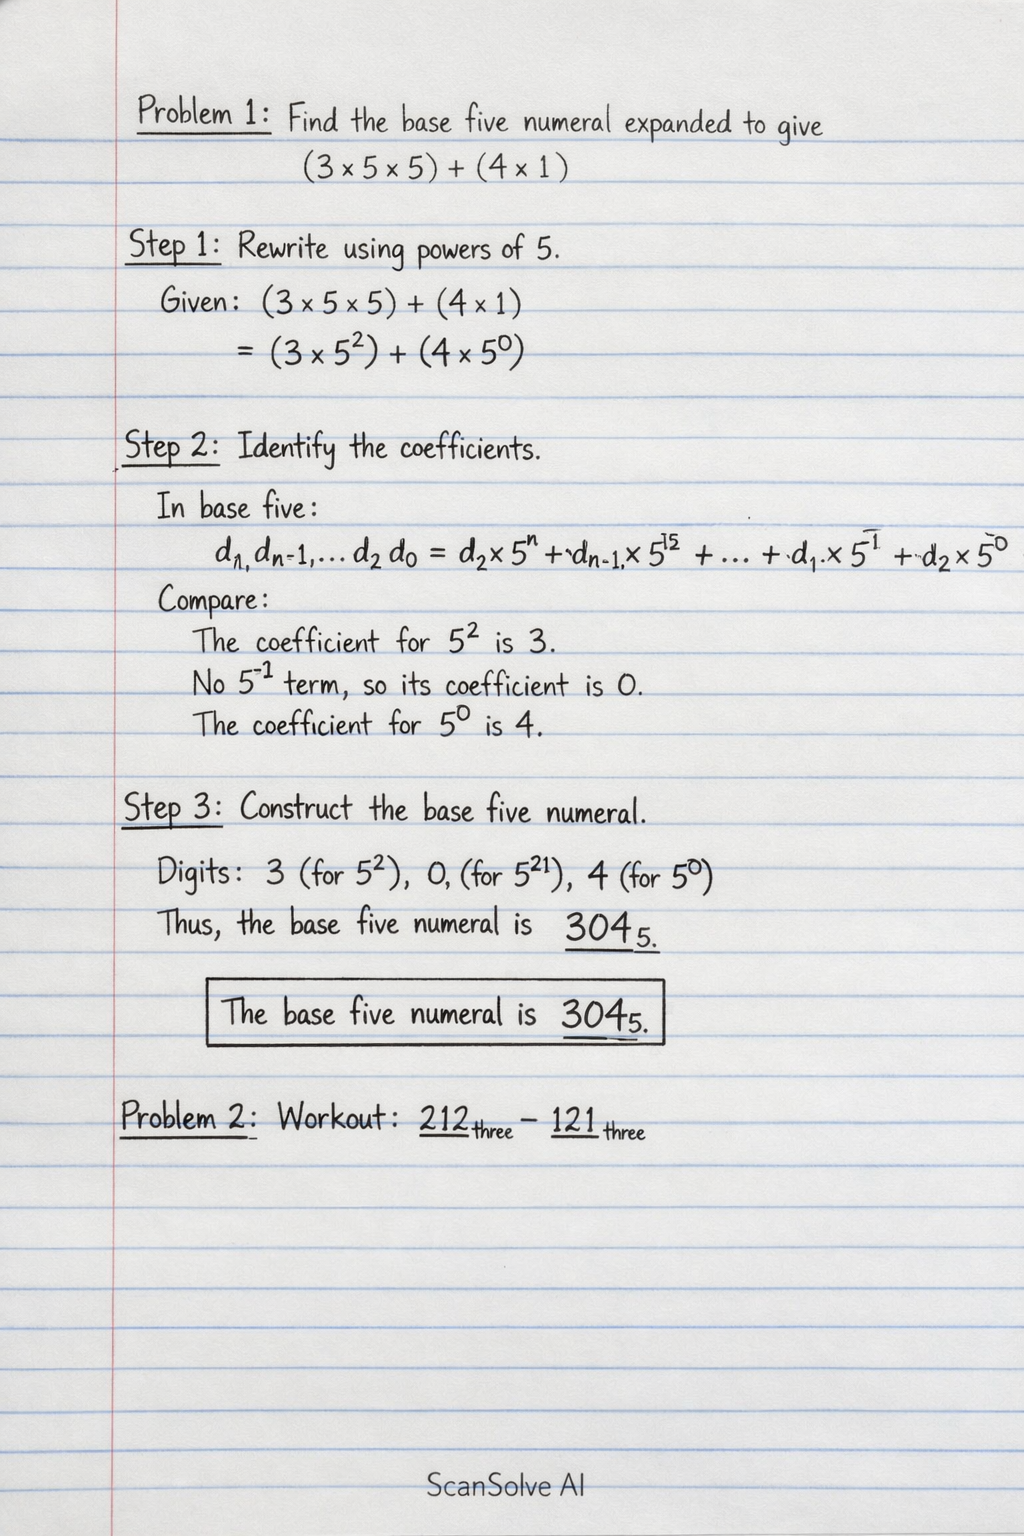 Problem 1: Find the base five numeral expanded to give
(3 × 5 × 5) + (4 × 1)
Step 1: Rewrite using powers of 5.
Given: (3 × 5 × 5) + (4 × 1)
= (3 × 5²) + (4 × 5⁰)
Step 2: Identify the coefficients.
In base five:
dₙ, dₙ₋₁, ... d₂ d₀ = d₂ × 5ⁿ + dₙ₋₁, × 5¹⁵ + ... + d₁. × 5⁻¹ + d₂ × 5⁻⁰
Compare:
The coefficient for 5² is 3.
No 5⁻¹ term, so its coefficient is 0.
The coefficient for 5⁰ is 4.
Step 3: Construct the base five numeral.
Digits: 3 (for 5²), 0, (for 5²¹), 4 (for 5⁰)
Thus, the base five numeral is 304₅.
The base five numeral is 304₅.
Problem 2: Workout: 212 three − 121 three
ScanSolve AI